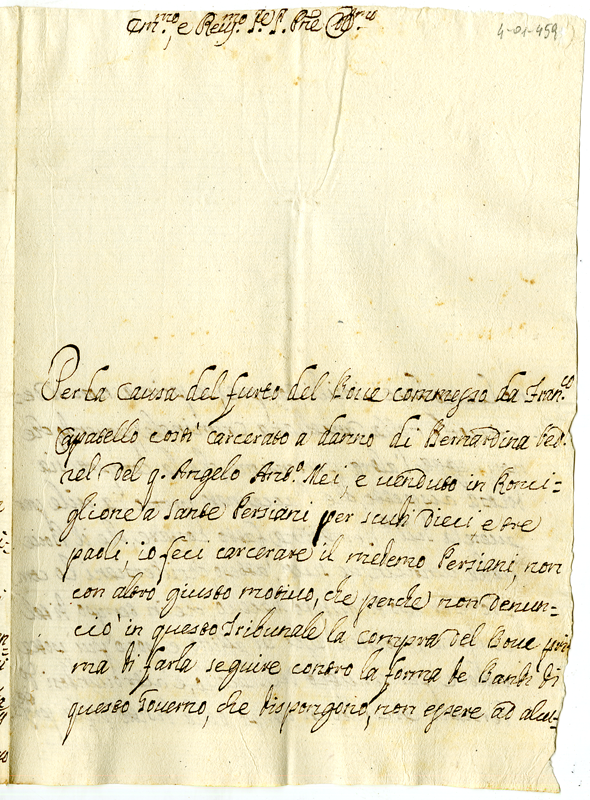 Ill.mo, e Rev.mo Sig.re Sig.re P.ne Col.mo
4-01-459
Per la Causa del furto del Boue commesso da Fran.co
Capatello costi' carcerato a danno di Bernardina Ved.
nel del q. Angelo Ant.o Mei, e venduto in Ronci=
glione a Sante Persiani per scudi Dieci e tre
paoli, io feci carcerare il medemo Persiani, non
con altro giusto motivo, che perche non denun=
ciò in questo Tribunale la compra del Boue pri
ma di farla seguire contro la forma de Bandi di
questo Governo, che dispongono, non essere ad alcu=